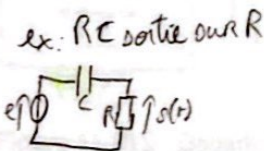 ex: RC sortie sur R
C
e
R
s(t)